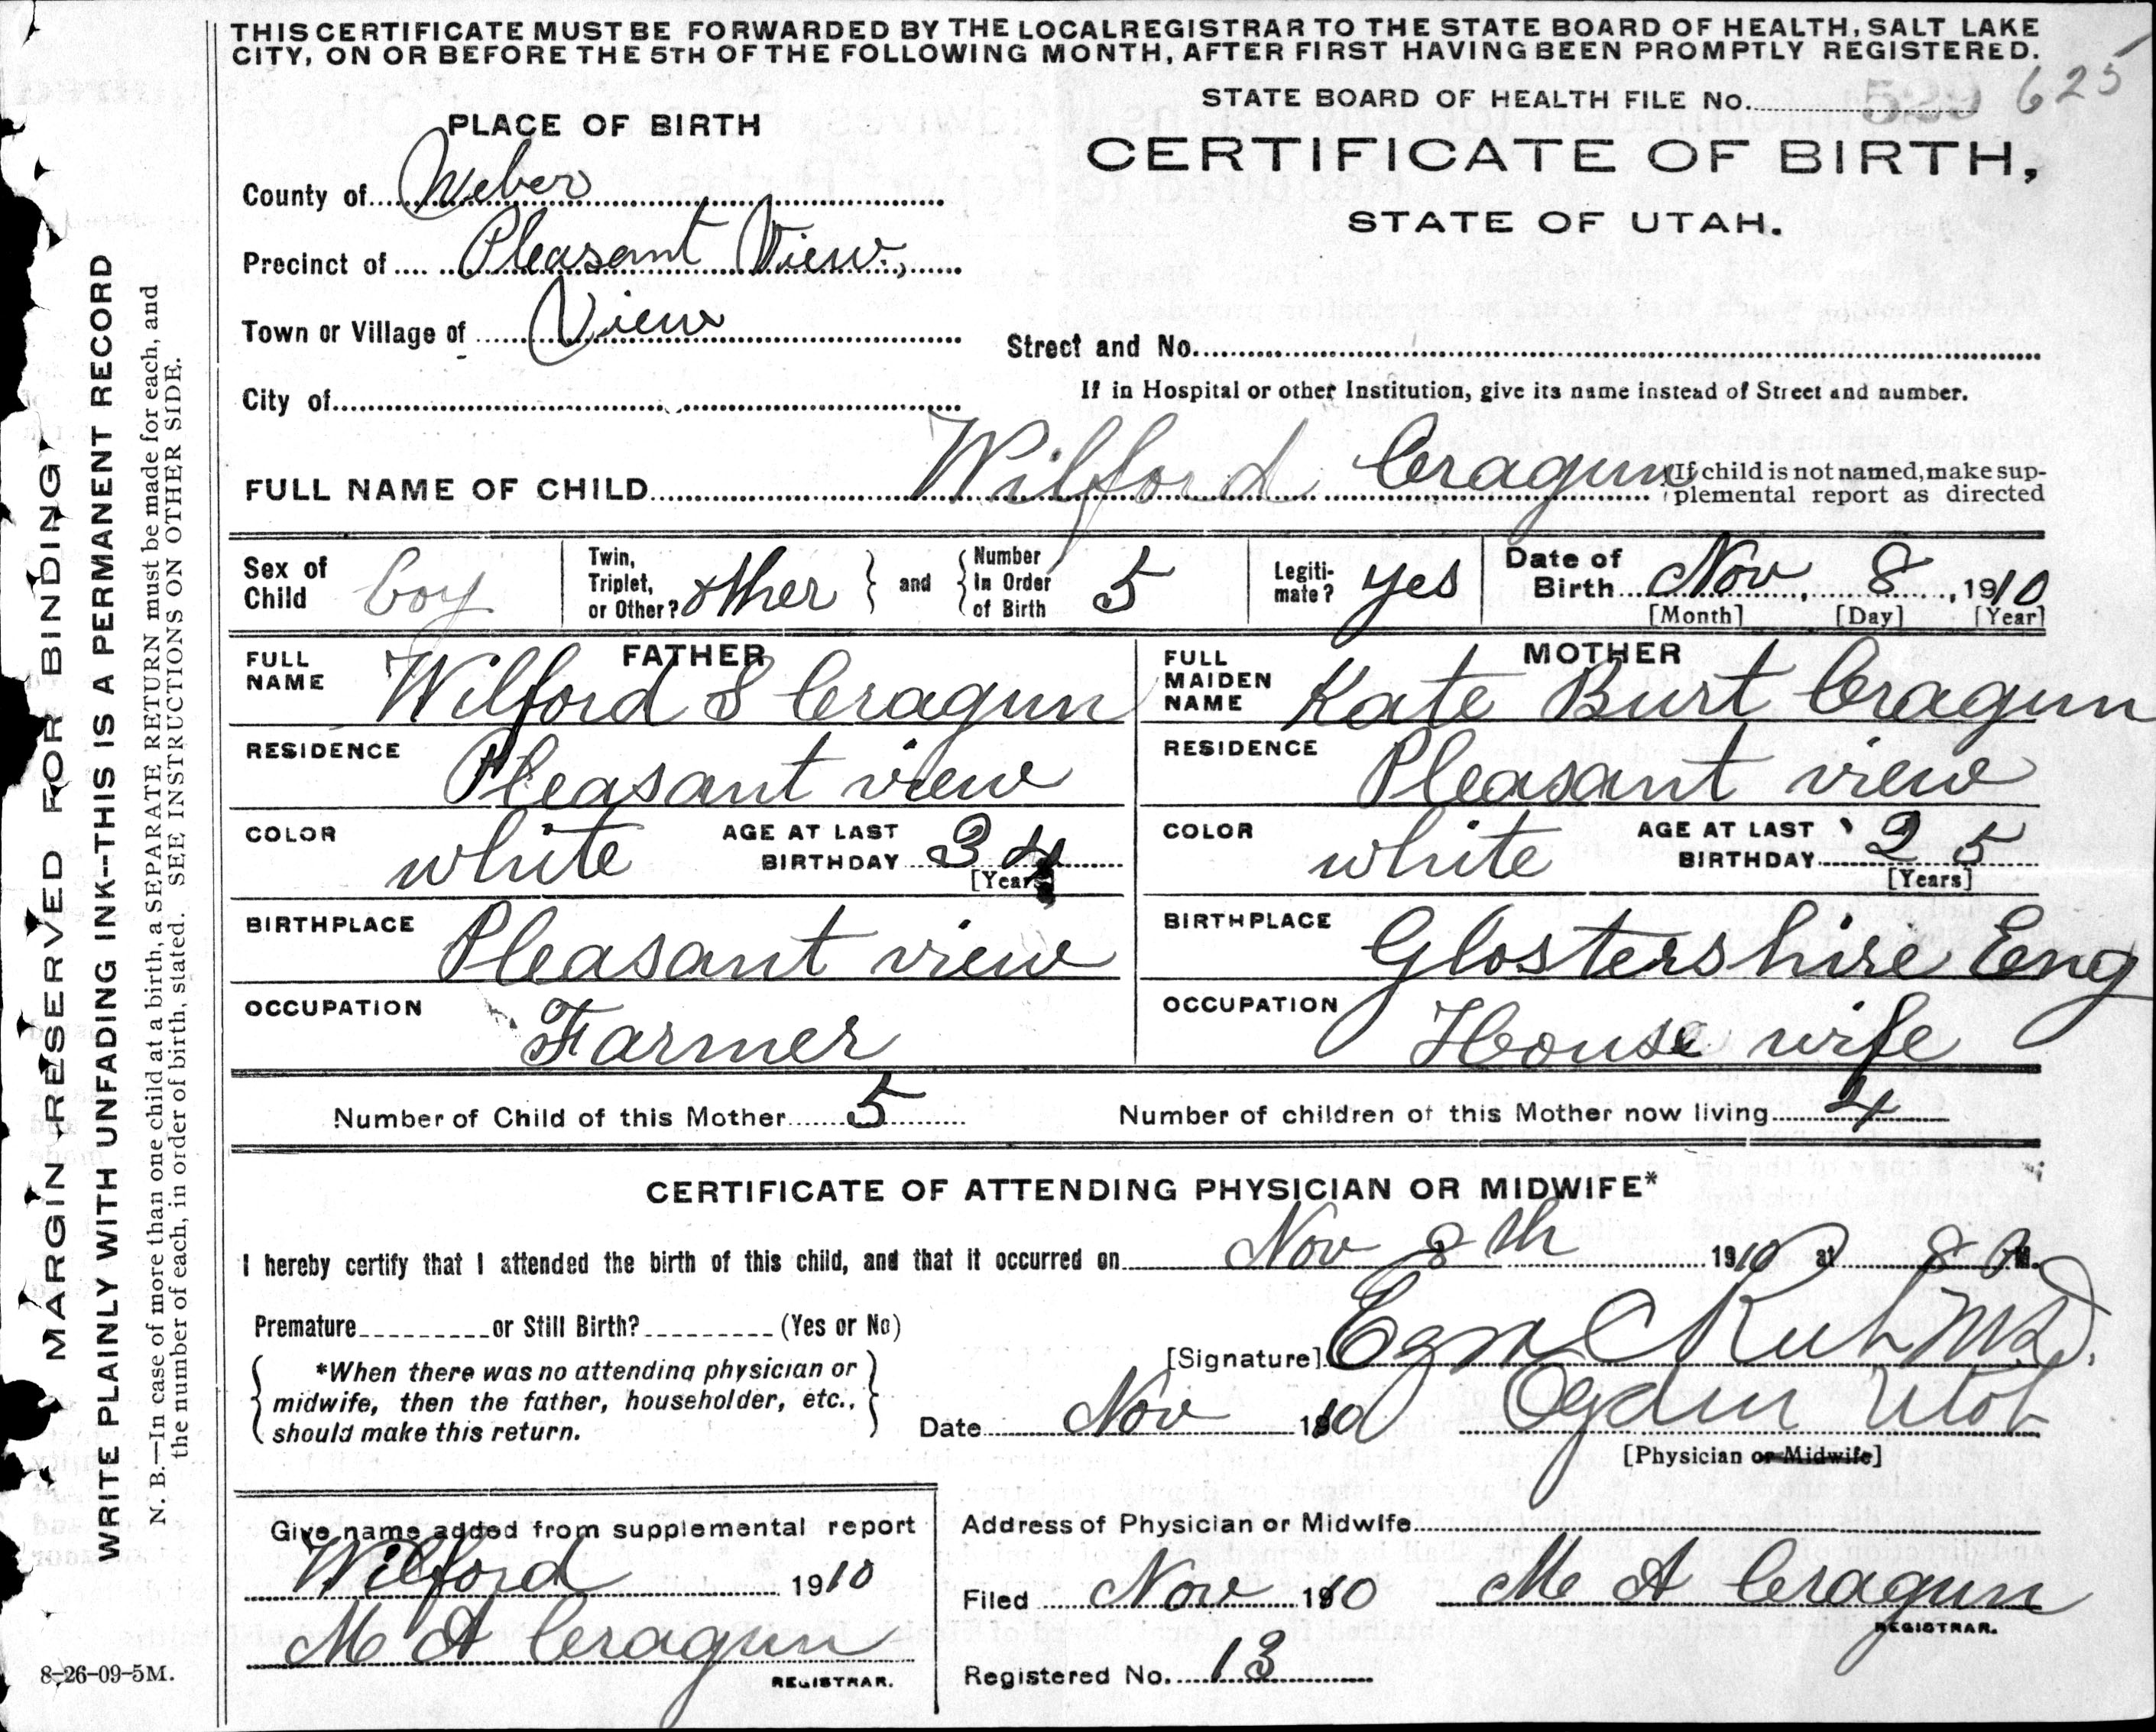 THIS CERTIFICATE MUST BE FORWARDED BY THE LOCAL REGISTRAR TO THE STATE BOARD OF HEALTH, SALT LAKE
CITY, ON OR BEFORE THE 5TH OF THE FOLLOWING MONTH, AFTER FIRST HAVING BEEN PROMPTLY REGISTERED.
STATE BOARD OF HEALTH FILE No. 625
PLACE OF BIRTH
CERTIFICATE OF BIRTH,
STATE OF UTAH.
County of Weber
Precinct of Pleasant View
Town or Village of View
Street and No.
City of
If in Hospital or other Institution, give its name instead of Street and number.
FULL NAME OF CHILD Wilford Cragun If child is not named, make sup-
plemental report as directed
Sex of Child boy
Twin, Triplet, or Other? other and Number In Order of Birth 5
Legiti-mate? yes
Date of Birth Nov, 8, 1910
[Month] [Day] [Year]
FATHER
FULL NAME Wilford S Cragun
MOTHER
FULL MAIDEN NAME Kate Burt Cragun
RESIDENCE Pleasant view
RESIDENCE Pleasant view
COLOR white AGE AT LAST BIRTHDAY 34 [Years]
COLOR white AGE AT LAST BIRTHDAY 25 [Years]
BIRTHPLACE Pleasant view
BIRTHPLACE Glostershire Eng
OCCUPATION Farmer
OCCUPATION House wife
Number of Child of this Mother 5 Number of children of this Mother now living 4
CERTIFICATE OF ATTENDING PHYSICIAN OR MIDWIFE*
I hereby certify that I attended the birth of this child, and that it occurred on Nov 8th 1910 at 8 M.
Premature or Still Birth? (Yes or No)
*When there was no attending physician or
midwife, then the father, householder, etc.,
should make this return.
[Signature] M.D.
Date Nov 1910 Ogden Utah
[Physician or Midwife]
Give name added from supplemental report
Wilford 1910
M A Cragun
REGISTRAR.
Address of Physician or Midwife
Filed Nov 1910 M A Cragun
REGISTRAR.
Registered No. 13
8-26-09-5M.
MARGIN RESERVED FOR BINDING
WRITE PLAINLY WITH UNFADING INK--THIS IS A PERMANENT RECORD
N. B.—In case of more than one child at a birth, a SEPARATE RETURN must be made for each, and
the number of each, in order of birth, stated. SEE INSTRUCTIONS ON OTHER SIDE.